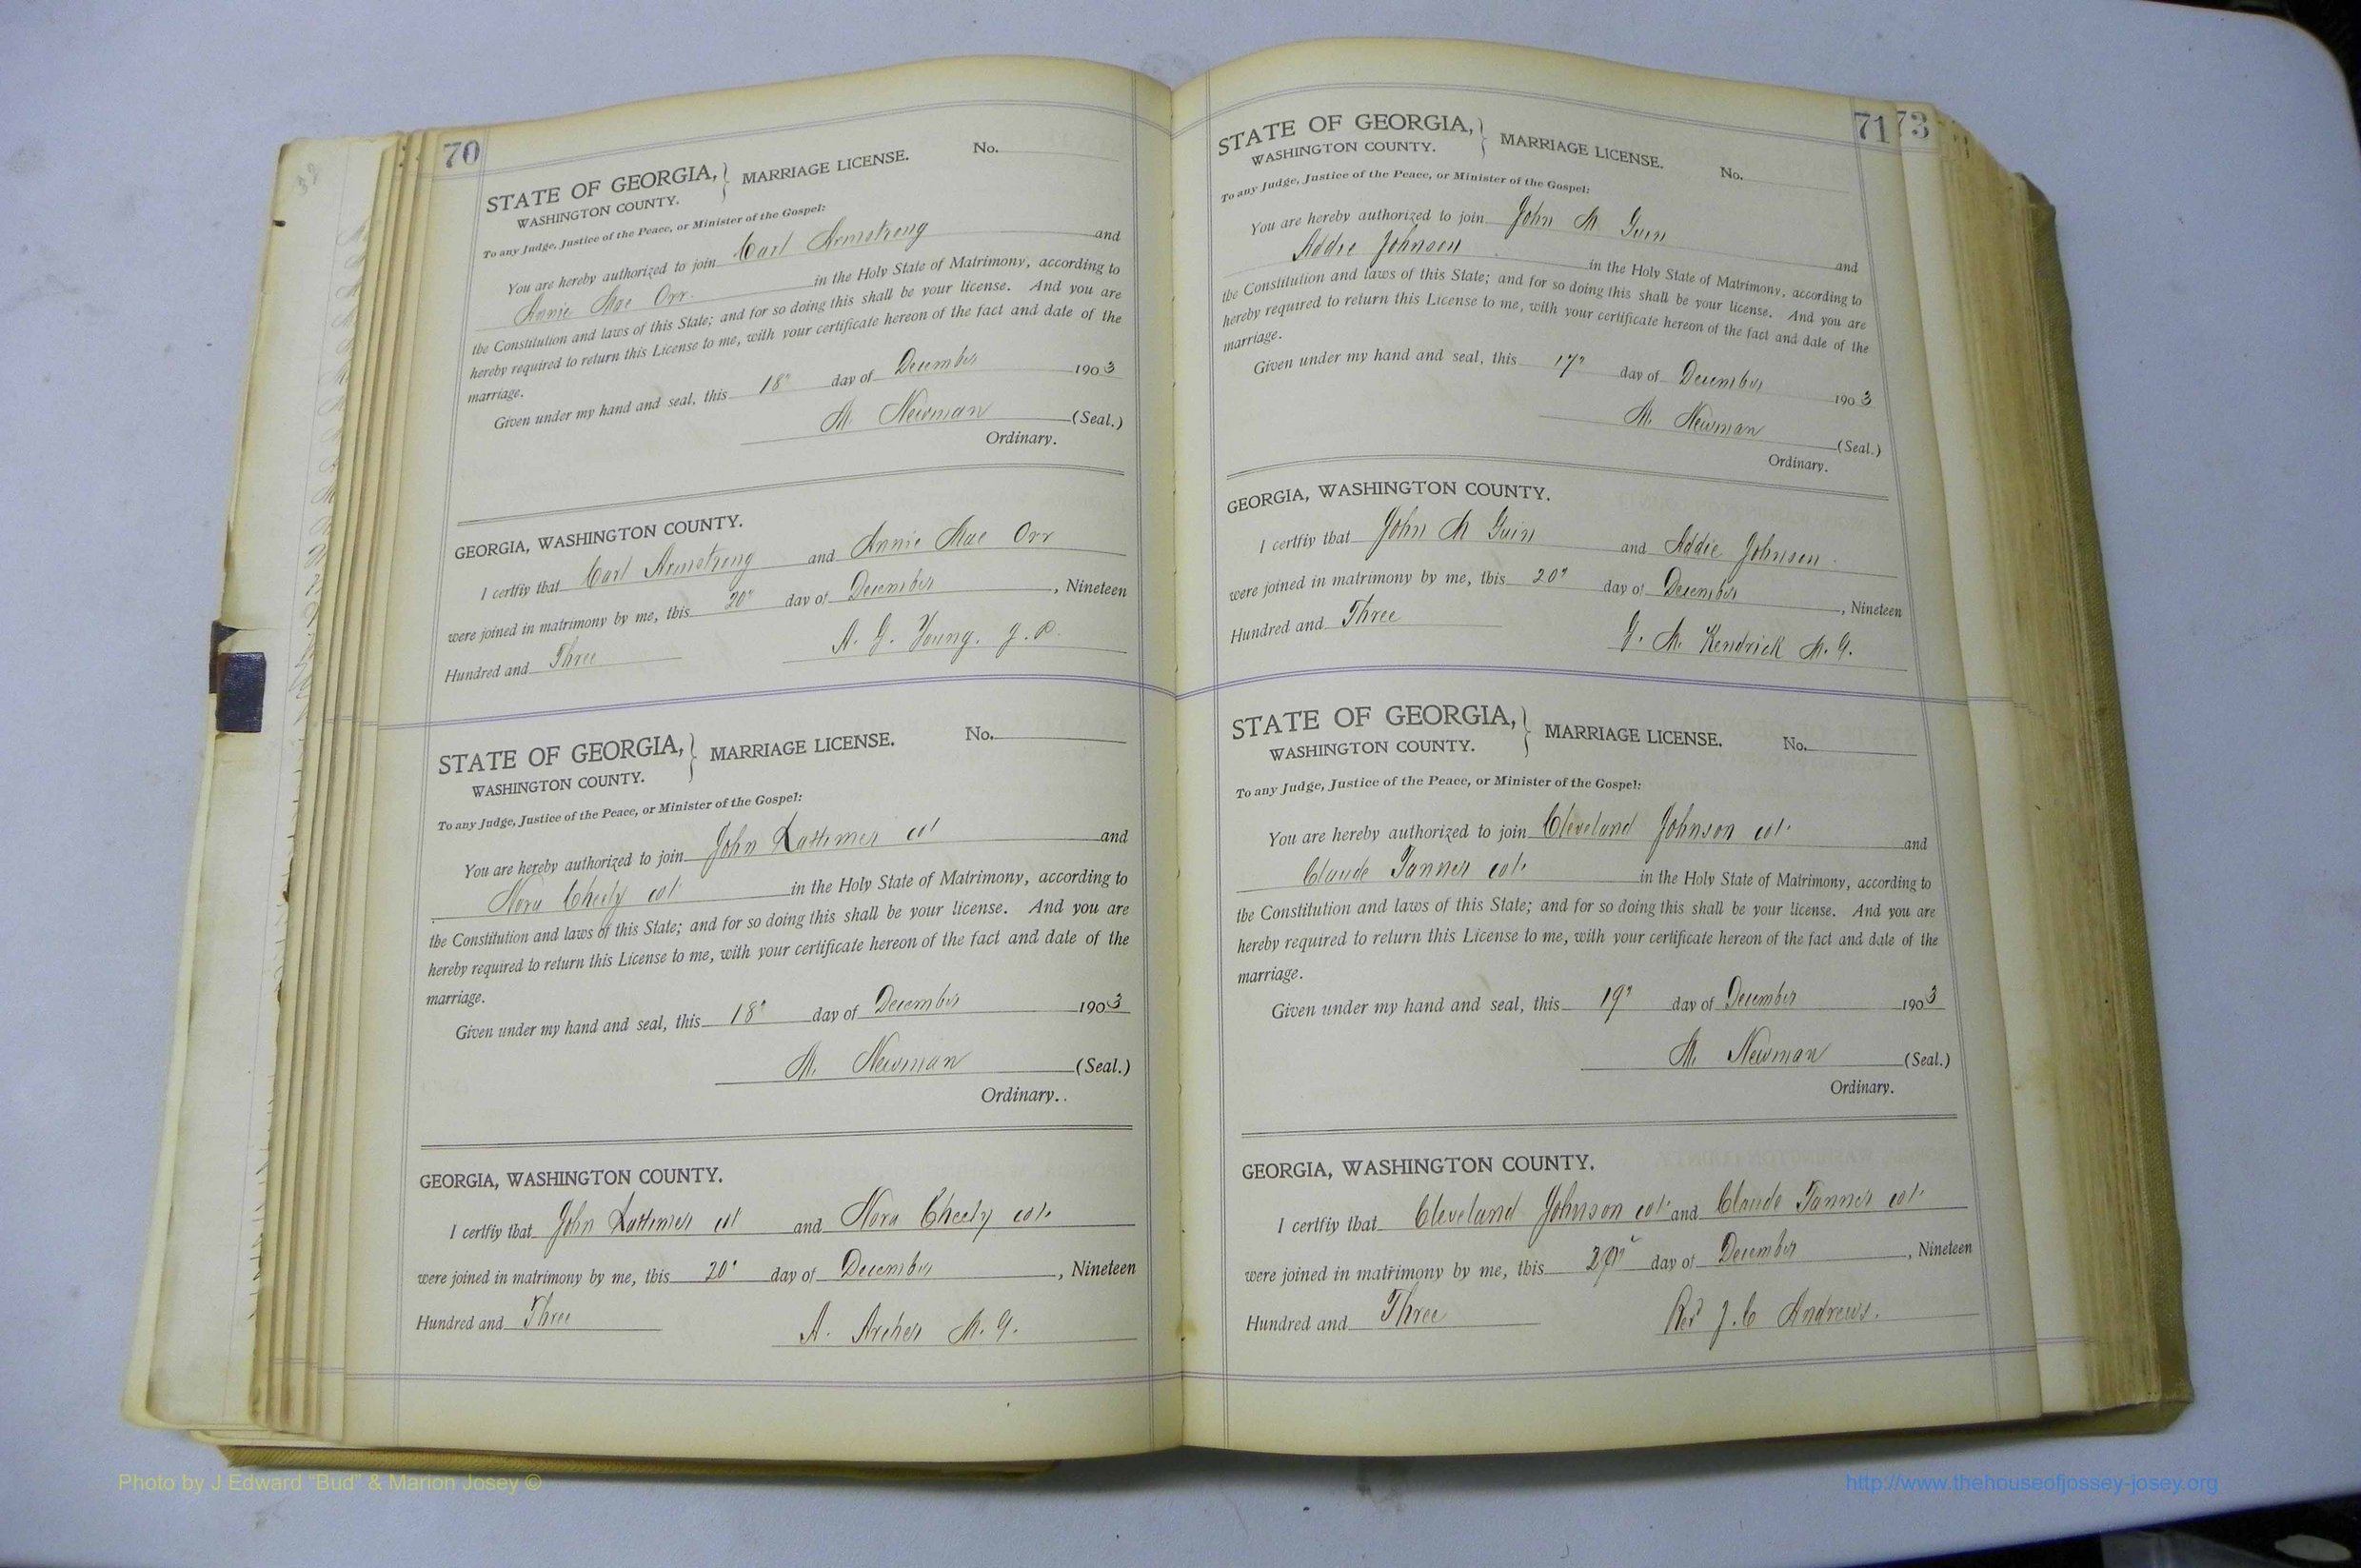 70
STATE OF GEORGIA, } MARRIAGE LICENSE. No.
WASHINGTON COUNTY.
To any Judge, Justice of the Peace, or Minister of the Gospel:
You are hereby authorized to join Carl Armstrong and
Annie Mae Orr. in the Holy State of Matrimony, according to
the Constitution and laws of this State; and for so doing this shall be your license. And you are
hereby required to return this License to me, with your certificate hereon of the fact and date of the
marriage.
Given under my hand and seal, this 18" day of December 1903
M. Newman (Seal.)
Ordinary.
GEORGIA, WASHINGTON COUNTY.
I certfiy that Carl Armstrong and Annie Mae Orr
were joined in matrimony by me, this 20" day of December, Nineteen
Hundred and Three A. G. Young. J. P.
STATE OF GEORGIA, } MARRIAGE LICENSE. No.
WASHINGTON COUNTY.
To any Judge, Justice of the Peace, or Minister of the Gospel:
You are hereby authorized to join John Lattimer col and
Nora Cheely col in the Holy State of Matrimony, according to
the Constitution and laws of this State; and for so doing this shall be your license. And you are
hereby required to return this License to me, with your certificate hereon of the fact and date of the
marriage.
Given under my hand and seal, this 18" day of December 1903
M. Newman (Seal.)
Ordinary..
GEORGIA, WASHINGTON COUNTY.
I certfiy that John Lattimer col and Nora Cheely col.
were joined in matrimony by me, this 20" day of December, Nineteen
Hundred and Three A. Archer M. G.
71
73
STATE OF GEORGIA, } MARRIAGE LICENSE. No.
WASHINGTON COUNTY.
To any Judge, Justice of the Peace, or Minister of the Gospel:
You are hereby authorized to join John M Guin and
Addie Johnson in the Holy State of Matrimony, according to
the Constitution and laws of this State; and for so doing this shall be your license. And you are
hereby required to return this License to me, with your certificate hereon of the fact and date of the
marriage.
Given under my hand and seal, this 17" day of December 1903
M. Newman (Seal.)
Ordinary.
GEORGIA, WASHINGTON COUNTY.
I certfiy that John M Guin and Addie Johnson.
were joined in matrimony by me, this 20" day of December, Nineteen
Hundred and Three G. M. Kendrick M. G.
STATE OF GEORGIA, } MARRIAGE LICENSE. No.
WASHINGTON COUNTY.
To any Judge, Justice of the Peace, or Minister of the Gospel:
You are hereby authorized to join Cleveland Johnson col. and
Claude Tanner col. in the Holy State of Matrimony, according to
the Constitution and laws of this State; and for so doing this shall be your license. And you are
hereby required to return this License to me, with your certificate hereon of the fact and date of the
marriage.
Given under my hand and seal, this 19" day of December 1903
M. Newman (Seal.)
Ordinary.
GEORGIA, WASHINGTON COUNTY.
I certfiy that Cleveland Johnson col. and Claude Tanner col.
were joined in matrimony by me, this day of December, Nineteen
Hundred and Three Rev J. C Andrews.
Photo by J Edward "Bud" & Marion Josey ©
http://www.thehouseofjossey-josey.org